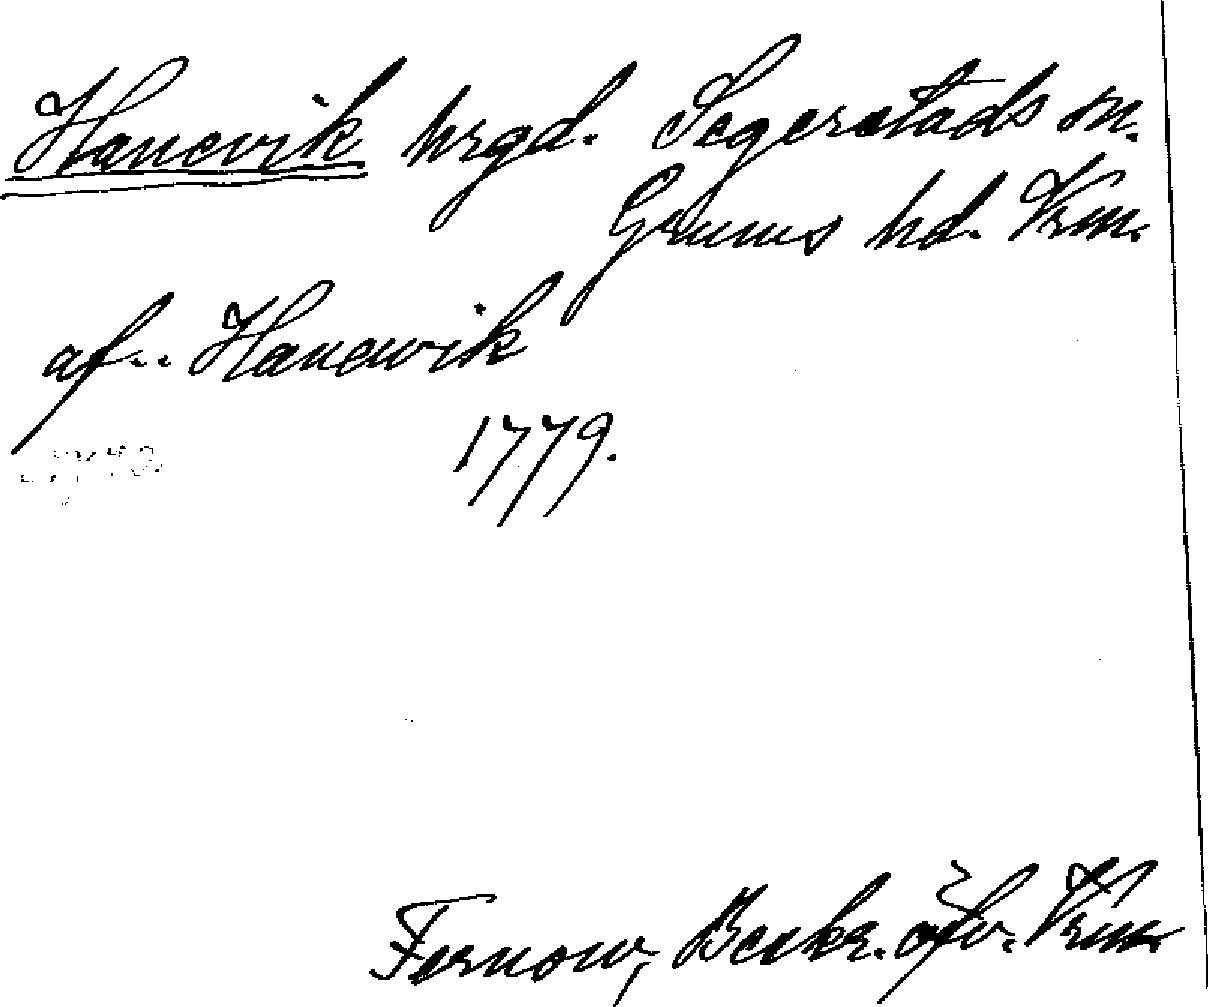 Hanevik hrgd. Segerstads sn.
Grums hd. Vrm.
af.. Hanewik
1779.
Fernow, Beskr. öfv. Vrm.